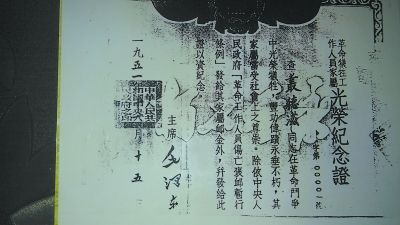 革命犧牲工
作人員家屬
光榮紀念證
字第
查 同志在革命鬥爭
中光榮犧牲，豐功偉績永垂不朽，其
家屬當受社會上之尊崇。除依中央人
民政府「革命工作人員傷亡褒卹暫行
條例」發給其家屬卹金外，幷發給此
證以資紀念。
主席 毛澤東
一九五一 十五